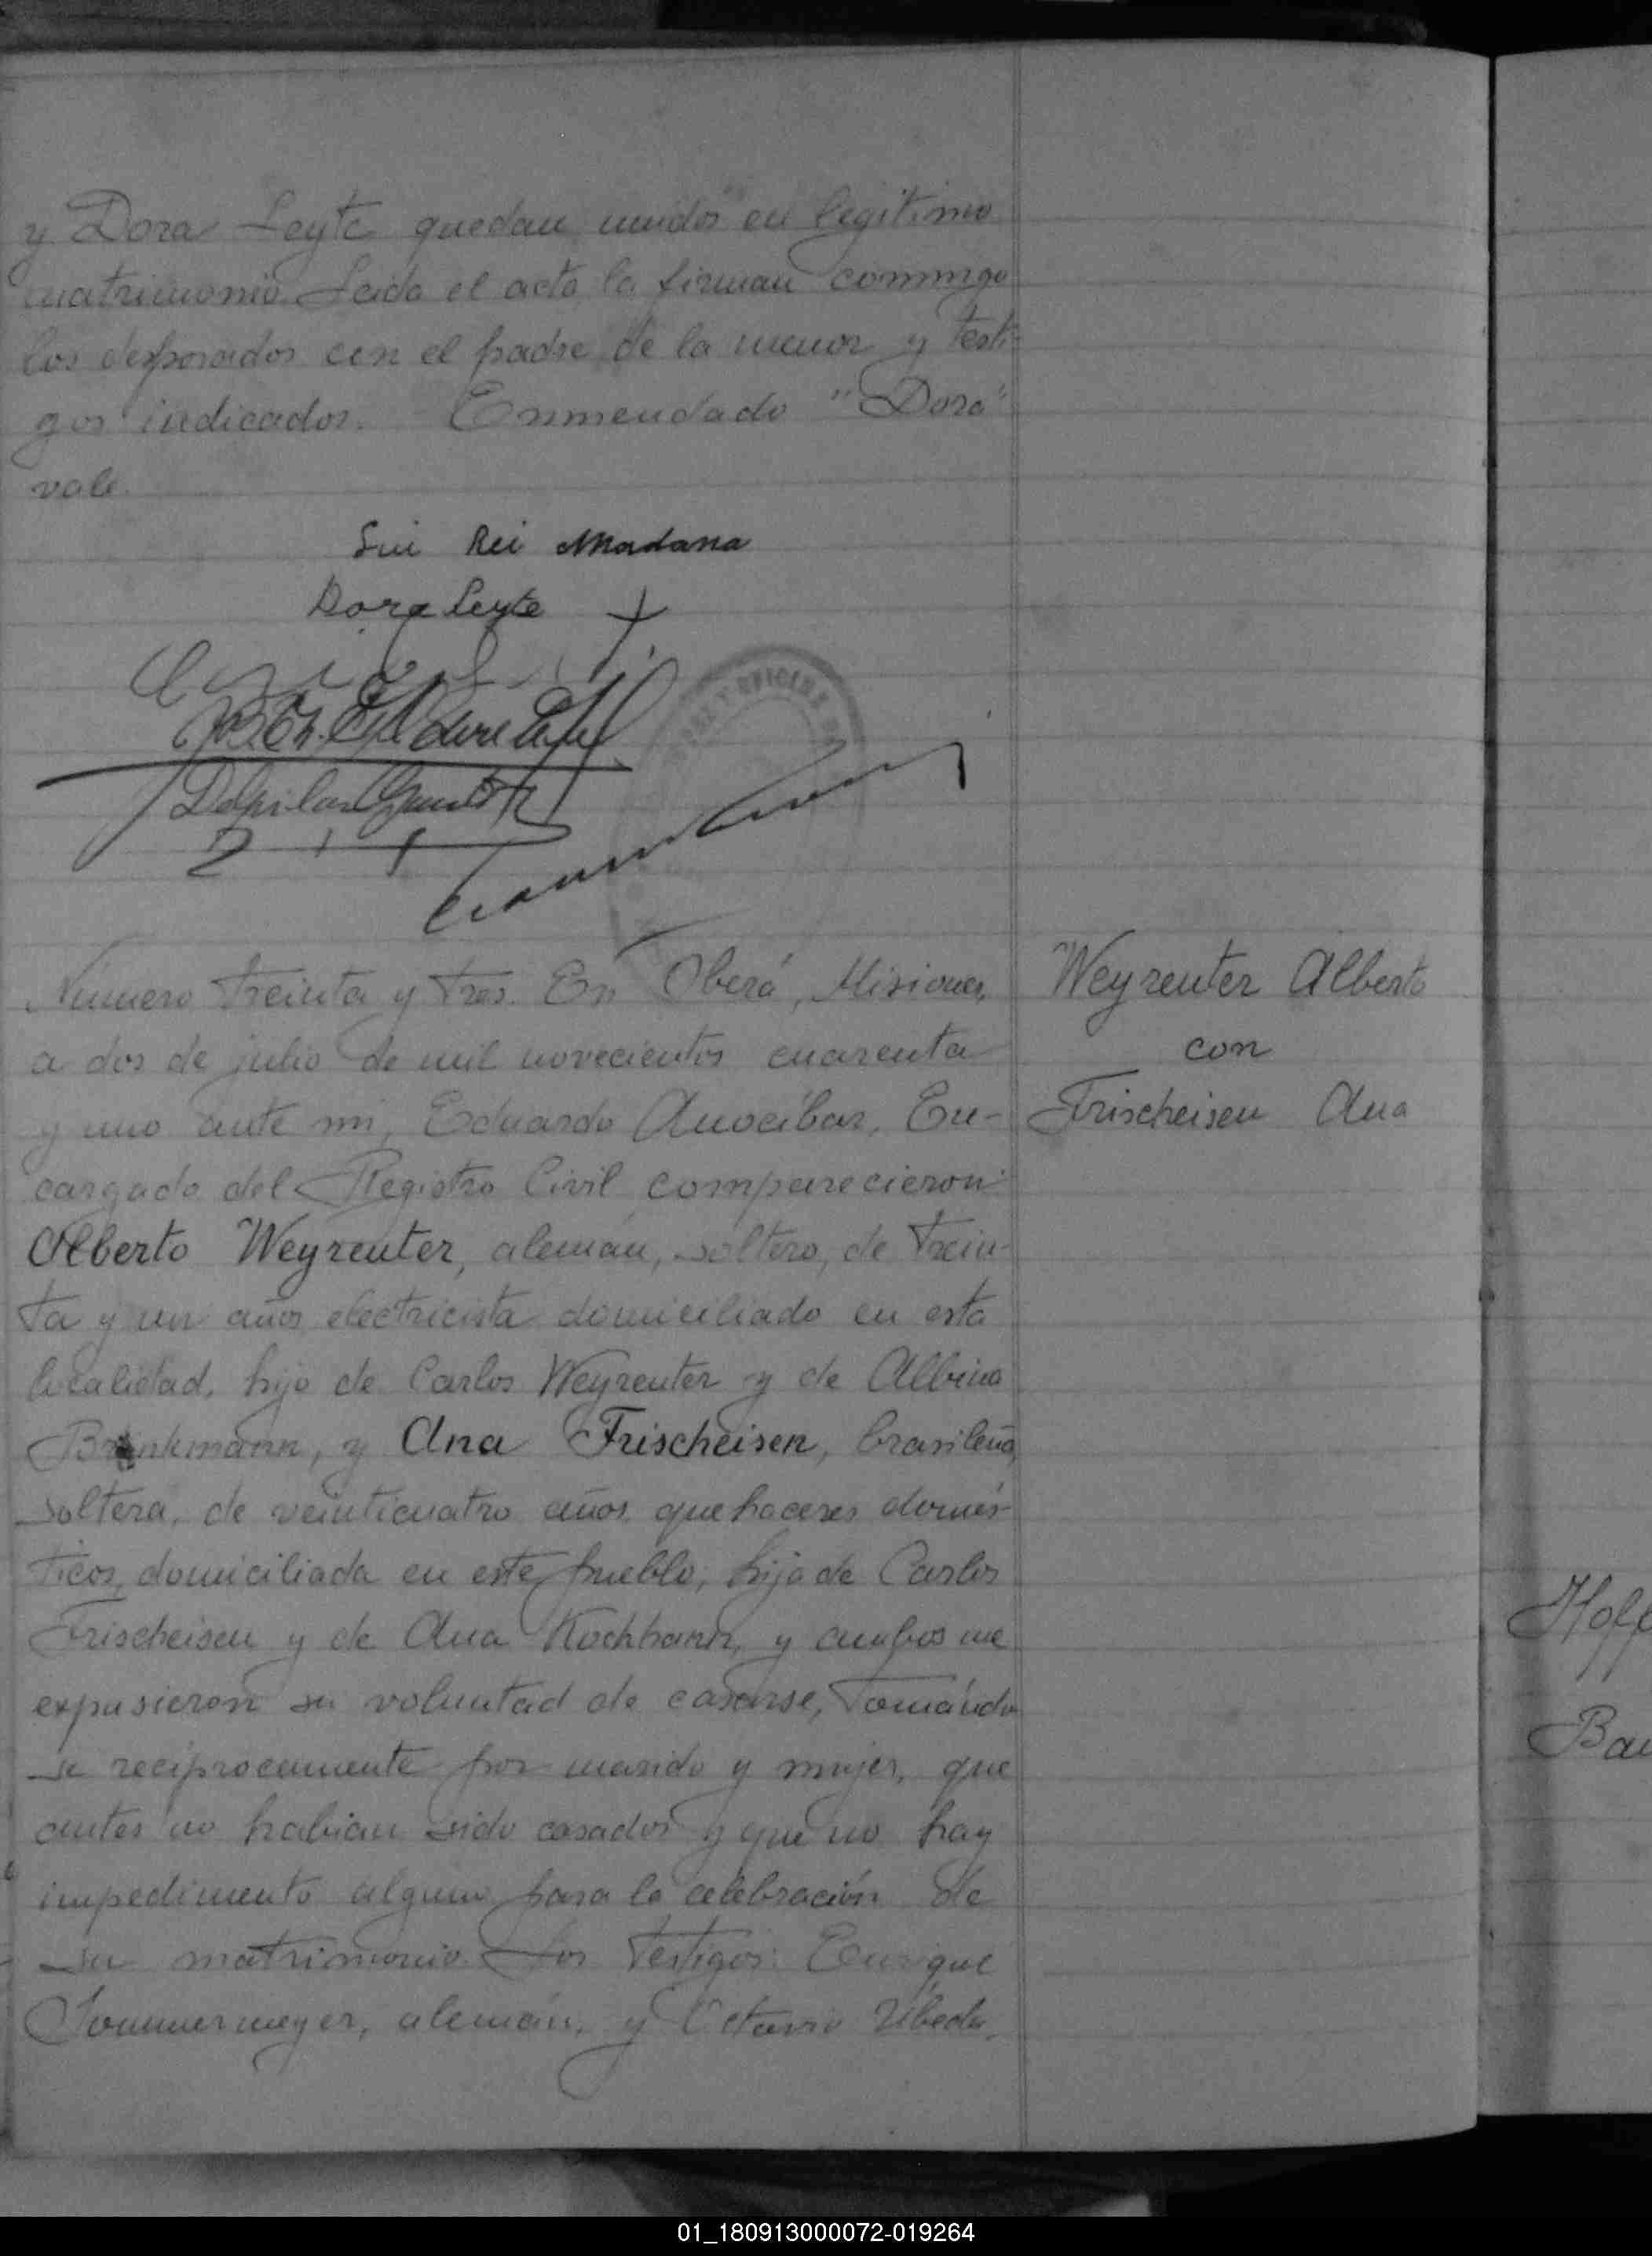 y Dora Leyte quedan unidos en legitimo
matrimonio. Leida el acta la firman commigo
los desposados con el padre de la menor y testi-
gos indicados. Enmendado "Dora"
vale.
Sui Rei Madana
Dora Leyte
Número treinta y tres. En Oberá, Misiones,
a dos de julio de mil novecientos cuarenta
y uno ante mi, Eduardo Anocibar, En-
cargado del Registro Civil comparecieron:
Alberto Weyreuter, alemán, soltero, de trein-
ta y un años electricista domiciliado en esta
localidad, hijo de Carlos Weyreuter y de Albina
Brinkmann, y Ana Frischeisen, brasileña,
soltera, de veinticuatro años, quehaceres domés-
ticos, domiciliada en este pueblo, hija de Carlos
Frischeisen y de Ana Kochhann, y ambos me
expusieron su voluntad de casarse, tomándo
se reciprocamente por marido y mujer, que
antes no habian sido casados y que no hay
impedimento alguno para la celebración de
su matrimonio. Los testigos: Enrique
Sommermeyer, alemán, y Octavio Ubeda,
Weyreuter Alberto
con
Frischeisen Ana
Hoff
Bau
01_180913000072-019264